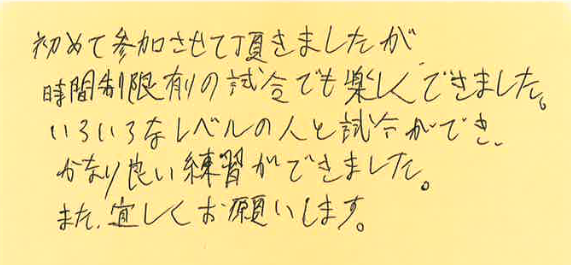 初めて参加させて頂きましたが
時間制限有の試合でも楽しくできました。
いろいろなレベルの人と試合ができ、
かなり良い練習ができました。
また、宜しくお願いします。